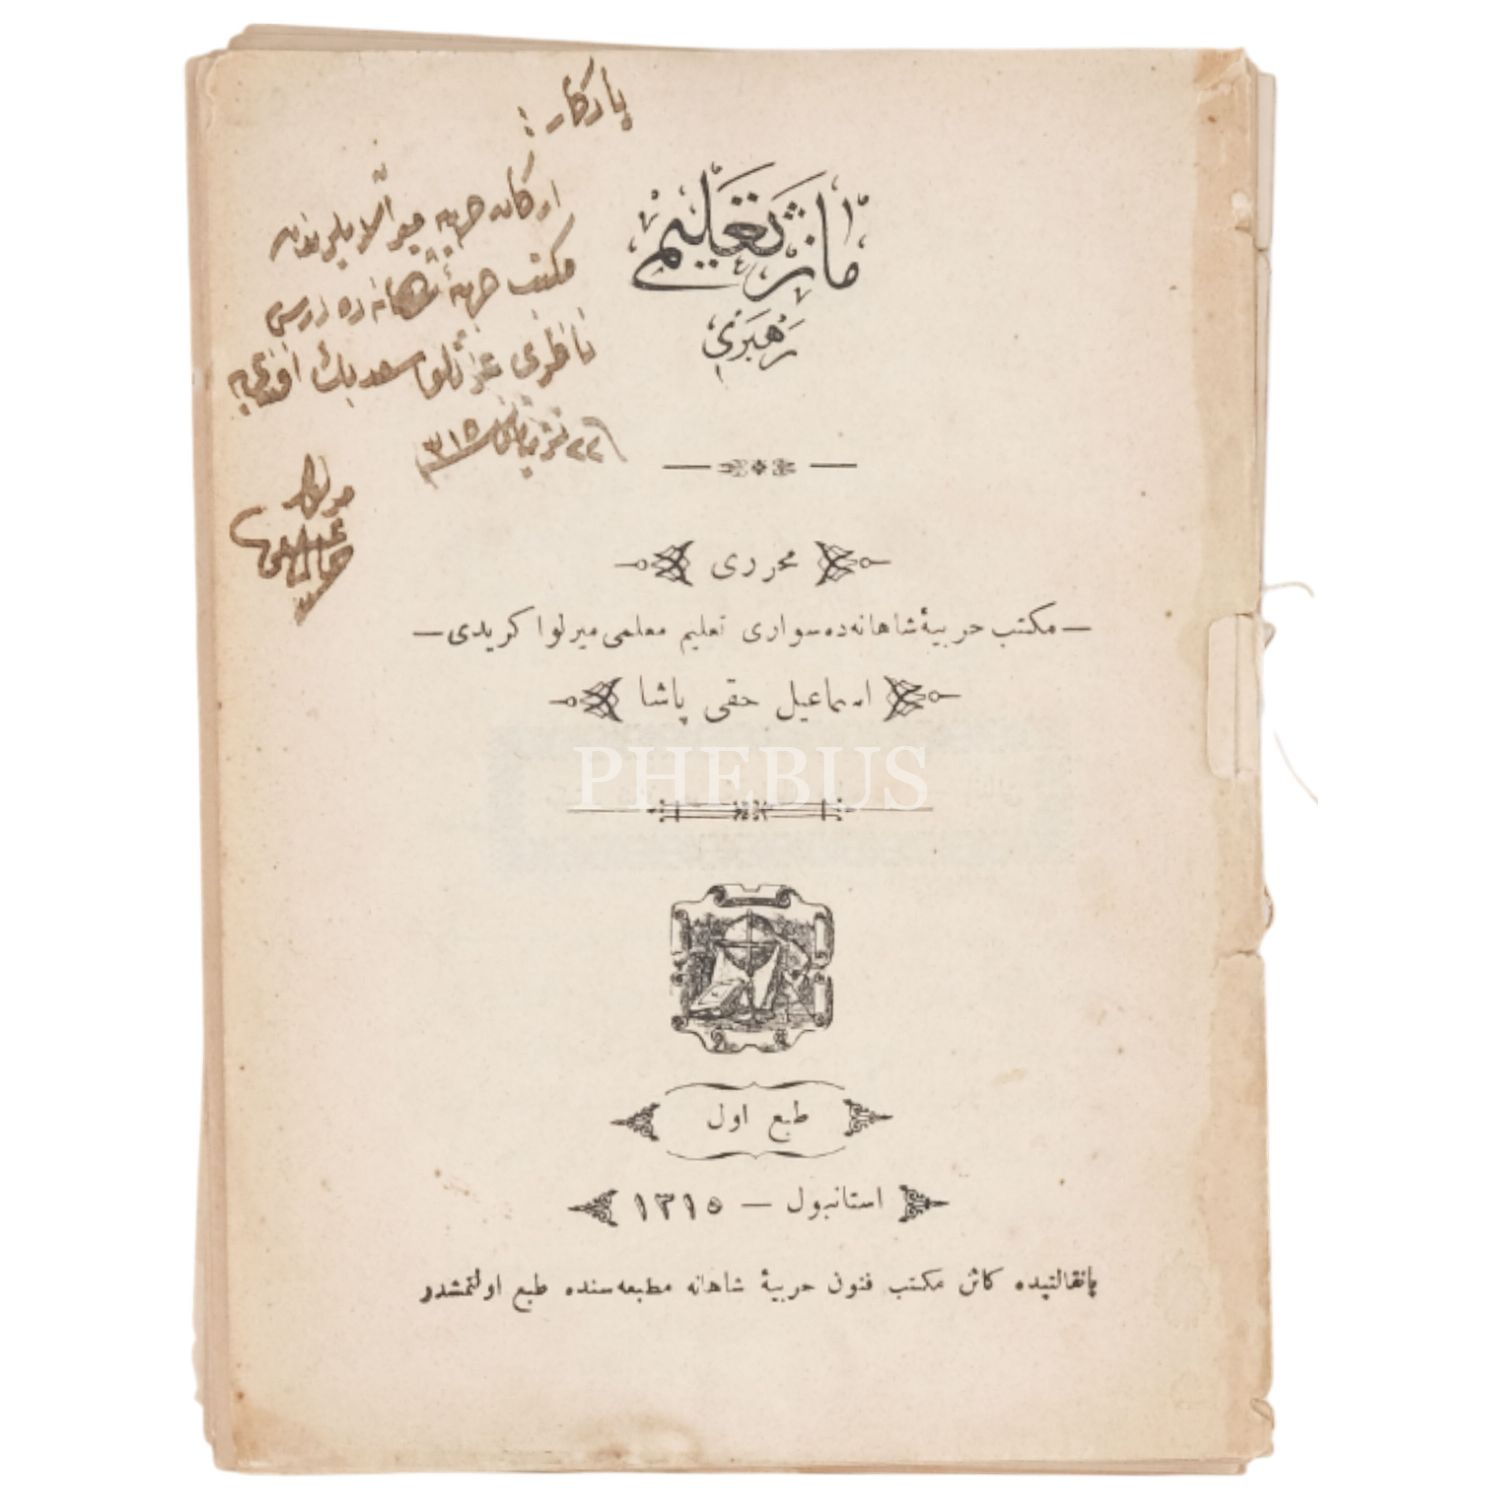 یادگار :
ارکان حربیه میرآلایلرندن
مکتب حربیۀ شاهانه ده درس
ناظری عزتلو سعد بك افندی یه
٢٢ تشرین ثانی سنه ٣١٥
میرلوا
اسماعیل حقی
مانژ تعلیمی
رهبری
محرری
— مکتب حربیۀ شاهانه ده سواری تعلیم معلمی میرلوا کریدی —
اسماعیل حقی پاشا
PHEBUS
طبع اول
استانبول — ١٣١٥
پانقالتیده کائن مکتب فنون حربیۀ شاهانه مطبعه سنده طبع اولنمشدر